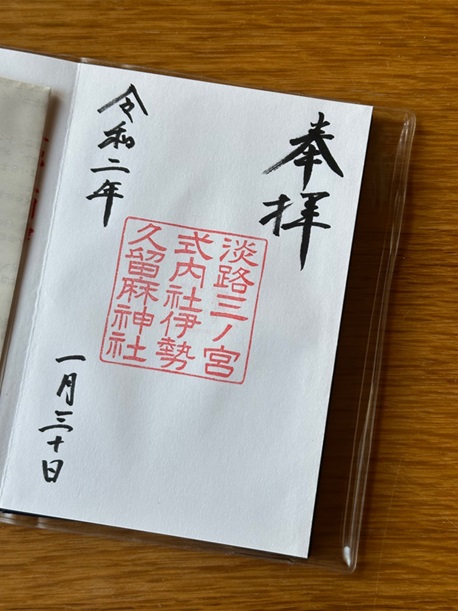 奉拝
淡路三ノ宮
式内社伊勢
久留麻神社
令和二年
一月三十日